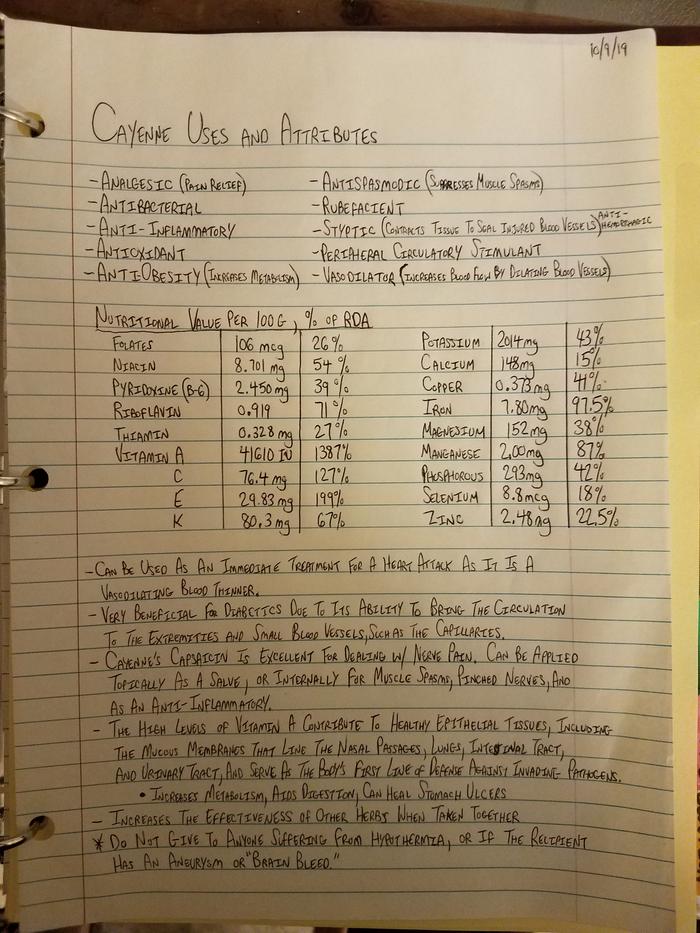 10/9/19
CAYENNE USES AND ATTRIBUTES
-ANALGESIC (PAIN RELIEF)
-ANTIBACTERIAL
-ANTI-INFLAMMATORY
-ANTIOXIDANT
-ANTIOBESITY (INCREASES METABOLISM)
-ANTISPASMODIC (SUPPRESSES MUSCLE SPASMS)
-RUBEFACIENT
-STYPTIC (CONTRACTS TISSUE TO SEAL INJURED BLOOD VESSELS) ANTI-HEMORRHAGIC
-PERIPHERAL CIRCULATORY STIMULANT
-VASODILATOR (INCREASES BLOOD FLOW BY DILATING BLOOD VESSELS)
NUTRITIONAL VALUE PER 100G, % OF RDA
FOLATES 106 mcg 26%
NIACIN 8.701 mg 54%
PYRIDOXINE (B-6) 2.450 mg 39%
RIBOFLAVIN 0.919 71%
THIAMIN 0.328 mg 27%
VITAMIN A 41610 IU 1387%
C 76.4 mg 127%
E 29.83 mg 199%
K 80.3 mg 67%
POTASSIUM 2014 mg 43%
CALCIUM 148 mg 15%
COPPER 0.373 mg 41%
IRON 7.80 mg 97.5%
MAGNESIUM 152 mg 38%
MANGANESE 2.00 mg 87%
PHOSPHOROUS 293 mg 42%
SELENIUM 8.8 mcg 18%
ZINC 2.48 mg 22.5%
-CAN BE USED AS AN IMMEDIATE TREATMENT FOR A HEART ATTACK AS IT IS A
VASODILATING BLOOD THINNER.
-VERY BENEFICIAL FOR DIABETICS DUE TO ITS ABILITY TO BRING THE CIRCULATION
TO THE EXTREMITIES AND SMALL BLOOD VESSELS, SUCH AS THE CAPILLARIES.
-CAYENNE'S CAPSAICIN IS EXCELLENT FOR DEALING W/ NERVE PAIN. CAN BE APPLIED
TOPICALLY AS A SALVE, OR INTERNALLY FOR MUSCLE SPASMS, PINCHED NERVES, AND
AS AN ANTI-INFLAMMATORY.
- THE HIGH LEVELS OF VITAMIN A CONTRIBUTE TO HEALTHY EPITHELIAL TISSUES, INCLUDING
THE MUCOUS MEMBRANES THAT LINE THE NASAL PASSAGES, LUNGS, INTESTINAL TRACT,
AND URINARY TRACT, AND SERVE AS THE BODY'S FIRST LINE OF DEFENSE AGAINST INVADING PATHOGENS.
• INCREASES METABOLISM, AIDS DIGESTION, CAN HEAL STOMACH ULCERS
- INCREASES THE EFFECTIVENESS OF OTHER HERBS WHEN TAKEN TOGETHER
* DO NOT GIVE TO ANYONE SUFFERING FROM HYPOTHERMIA, OR IF THE RECIPIENT
HAS AN ANEURYSM OR "BRAIN BLEED."